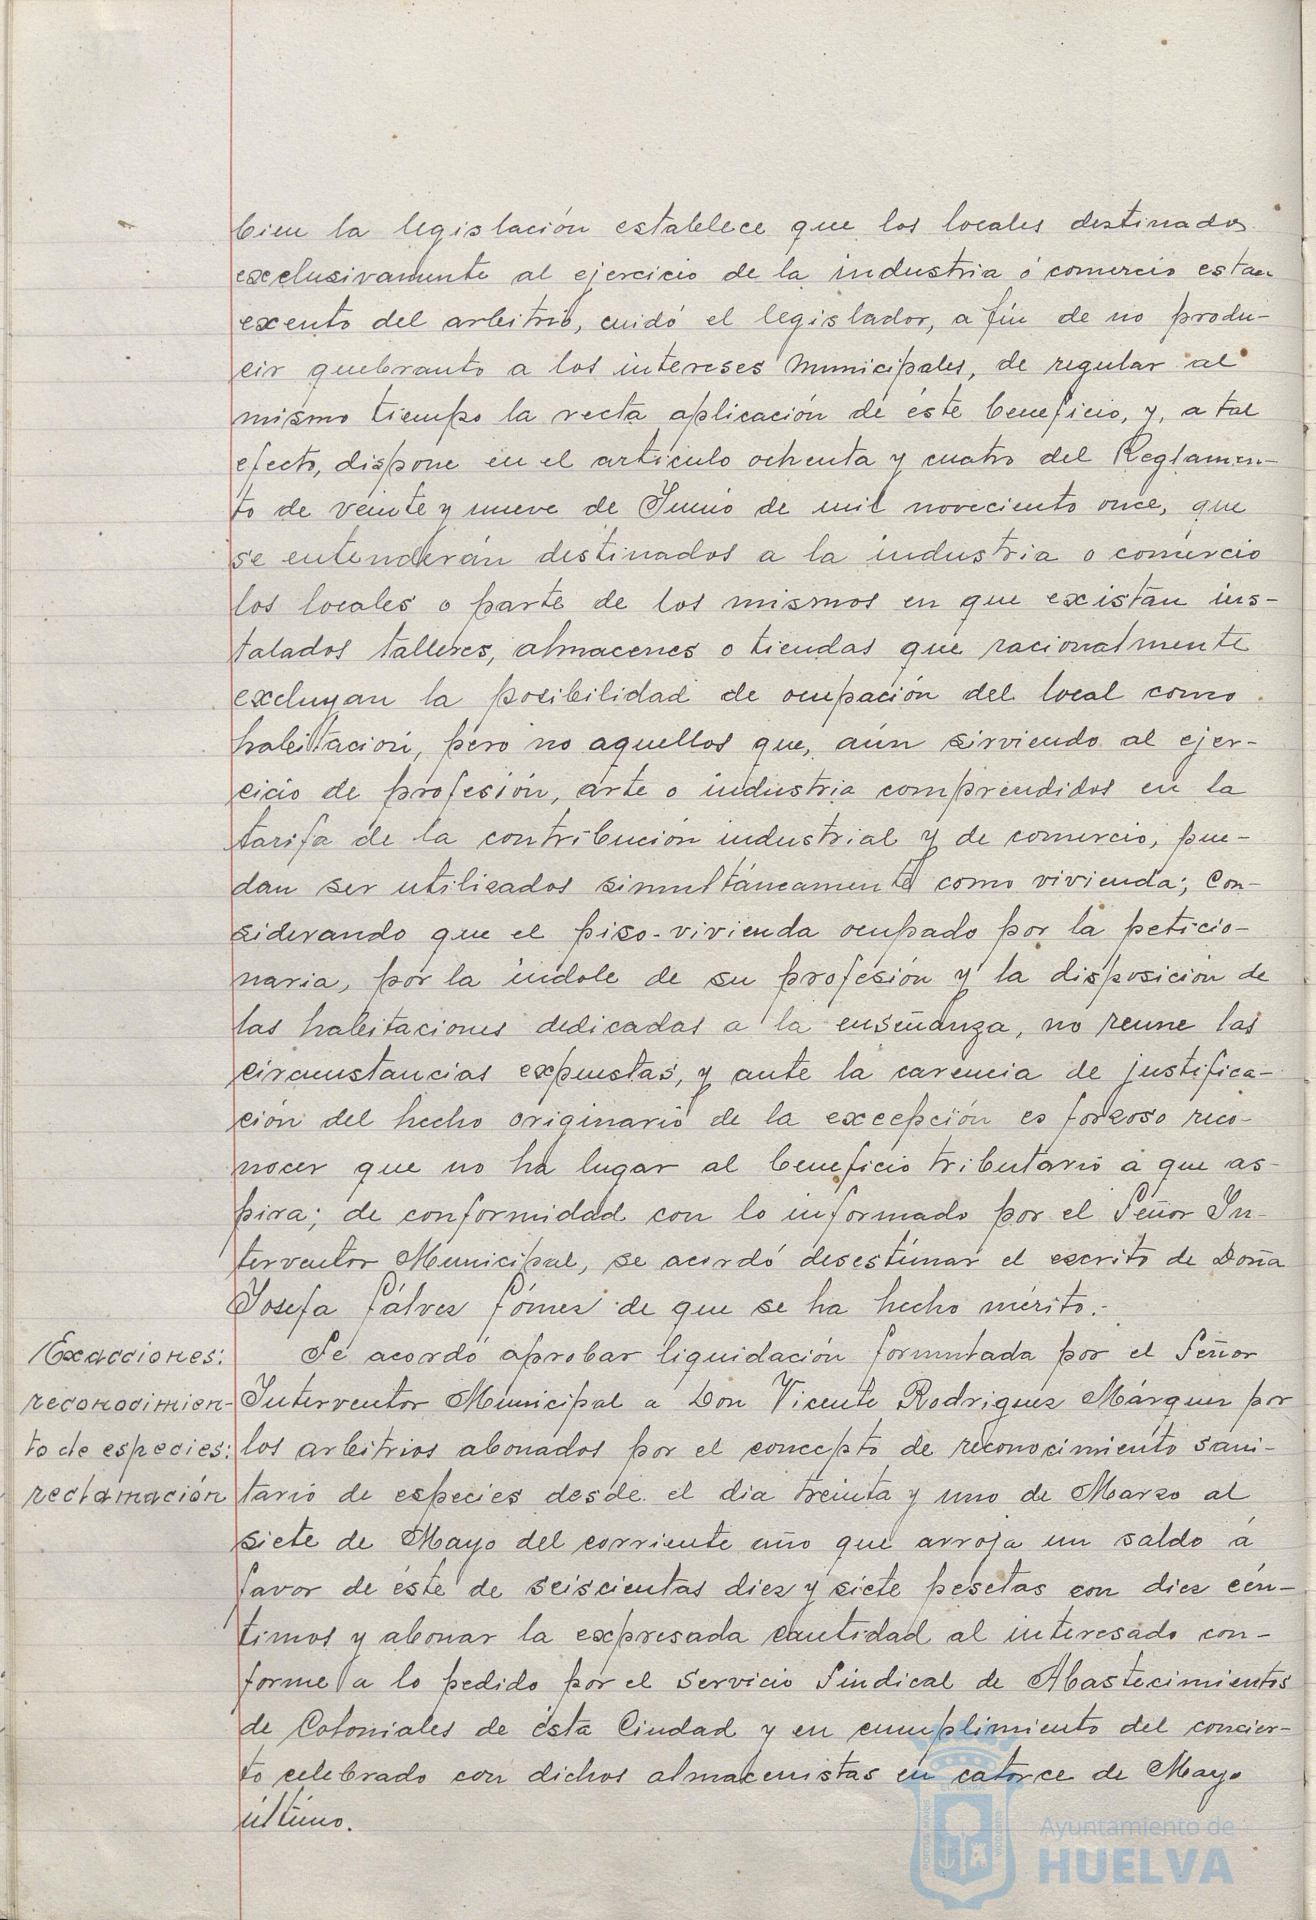 bien la legislación establece que los locales destinados
exclusivamente al ejercicio de la industria ó comercio estan
exento del arbitrio, cuidó el legislador, a fín de no produ-
cir quebranto a los intereses Municipales, de regular al
mismo tiempo la recta aplicación de éste beneficio, y, a tal
efecto, dispone en el artículo ochenta y cuatro del Reglamen-
to de veinte y nueve de Junio de mil noveciento once, que
se entenderán destinados a la industria o comercio
los locales o parte de los mismos en que existan ins-
talados talleres, almacenes o tiendas que racionalmente
excluyan la posibilidad de ocupación del local como
habitación, pero no aquellos que, aún sirviendo al ejer-
cicio de profesión, arte o industria comprendidos en la
tarifa de la contribución industrial y de comercio, pue-
dan ser utilizados simultáneamente como vivienda; Con-
siderando que el piso-vivienda ocupado por la peticio-
naria, por la índole de su profesión y la disposición de
las habitaciones dedicadas a la enseñanza, no reune las
circunstancias expuestas, y ante la carencia de justifica-
ción del hecho originario de la excepción es forzoso reco-
nocer que no ha lugar al beneficio tributario a que as-
pira; de conformidad con lo informado por el Señor In-
terventor Municipal, se acordó desestimar el escrito de Doña
Josefa Gálvez Gómez de que se ha hecho mérito.-
Exacciones:
reconocimien-
to de especies:
reclamación
Se acordó aprobar liquidación formulada por el Señor
Interventor Municipal a Don Vicente Rodriguez Márquez por
los arbitrios abonados por el concepto de reconocimiento sani-
tario de especies desde el dia treinta y uno de Marzo al
siete de Mayo del corriente año que arroja un saldo á
favor de éste de seiscientas diez y siete pesetas con diez cén-
timos y abonar la expresada cantidad al interesado con-
forme a lo pedido por el Servicio Sindical de Abastecimientos
de Coloniales de ésta Ciudad y en cumplimiento del concier-
to celebrado con dichos almacenistas en catorce de Mayo
último.
Ayuntamiento de
HUELVA